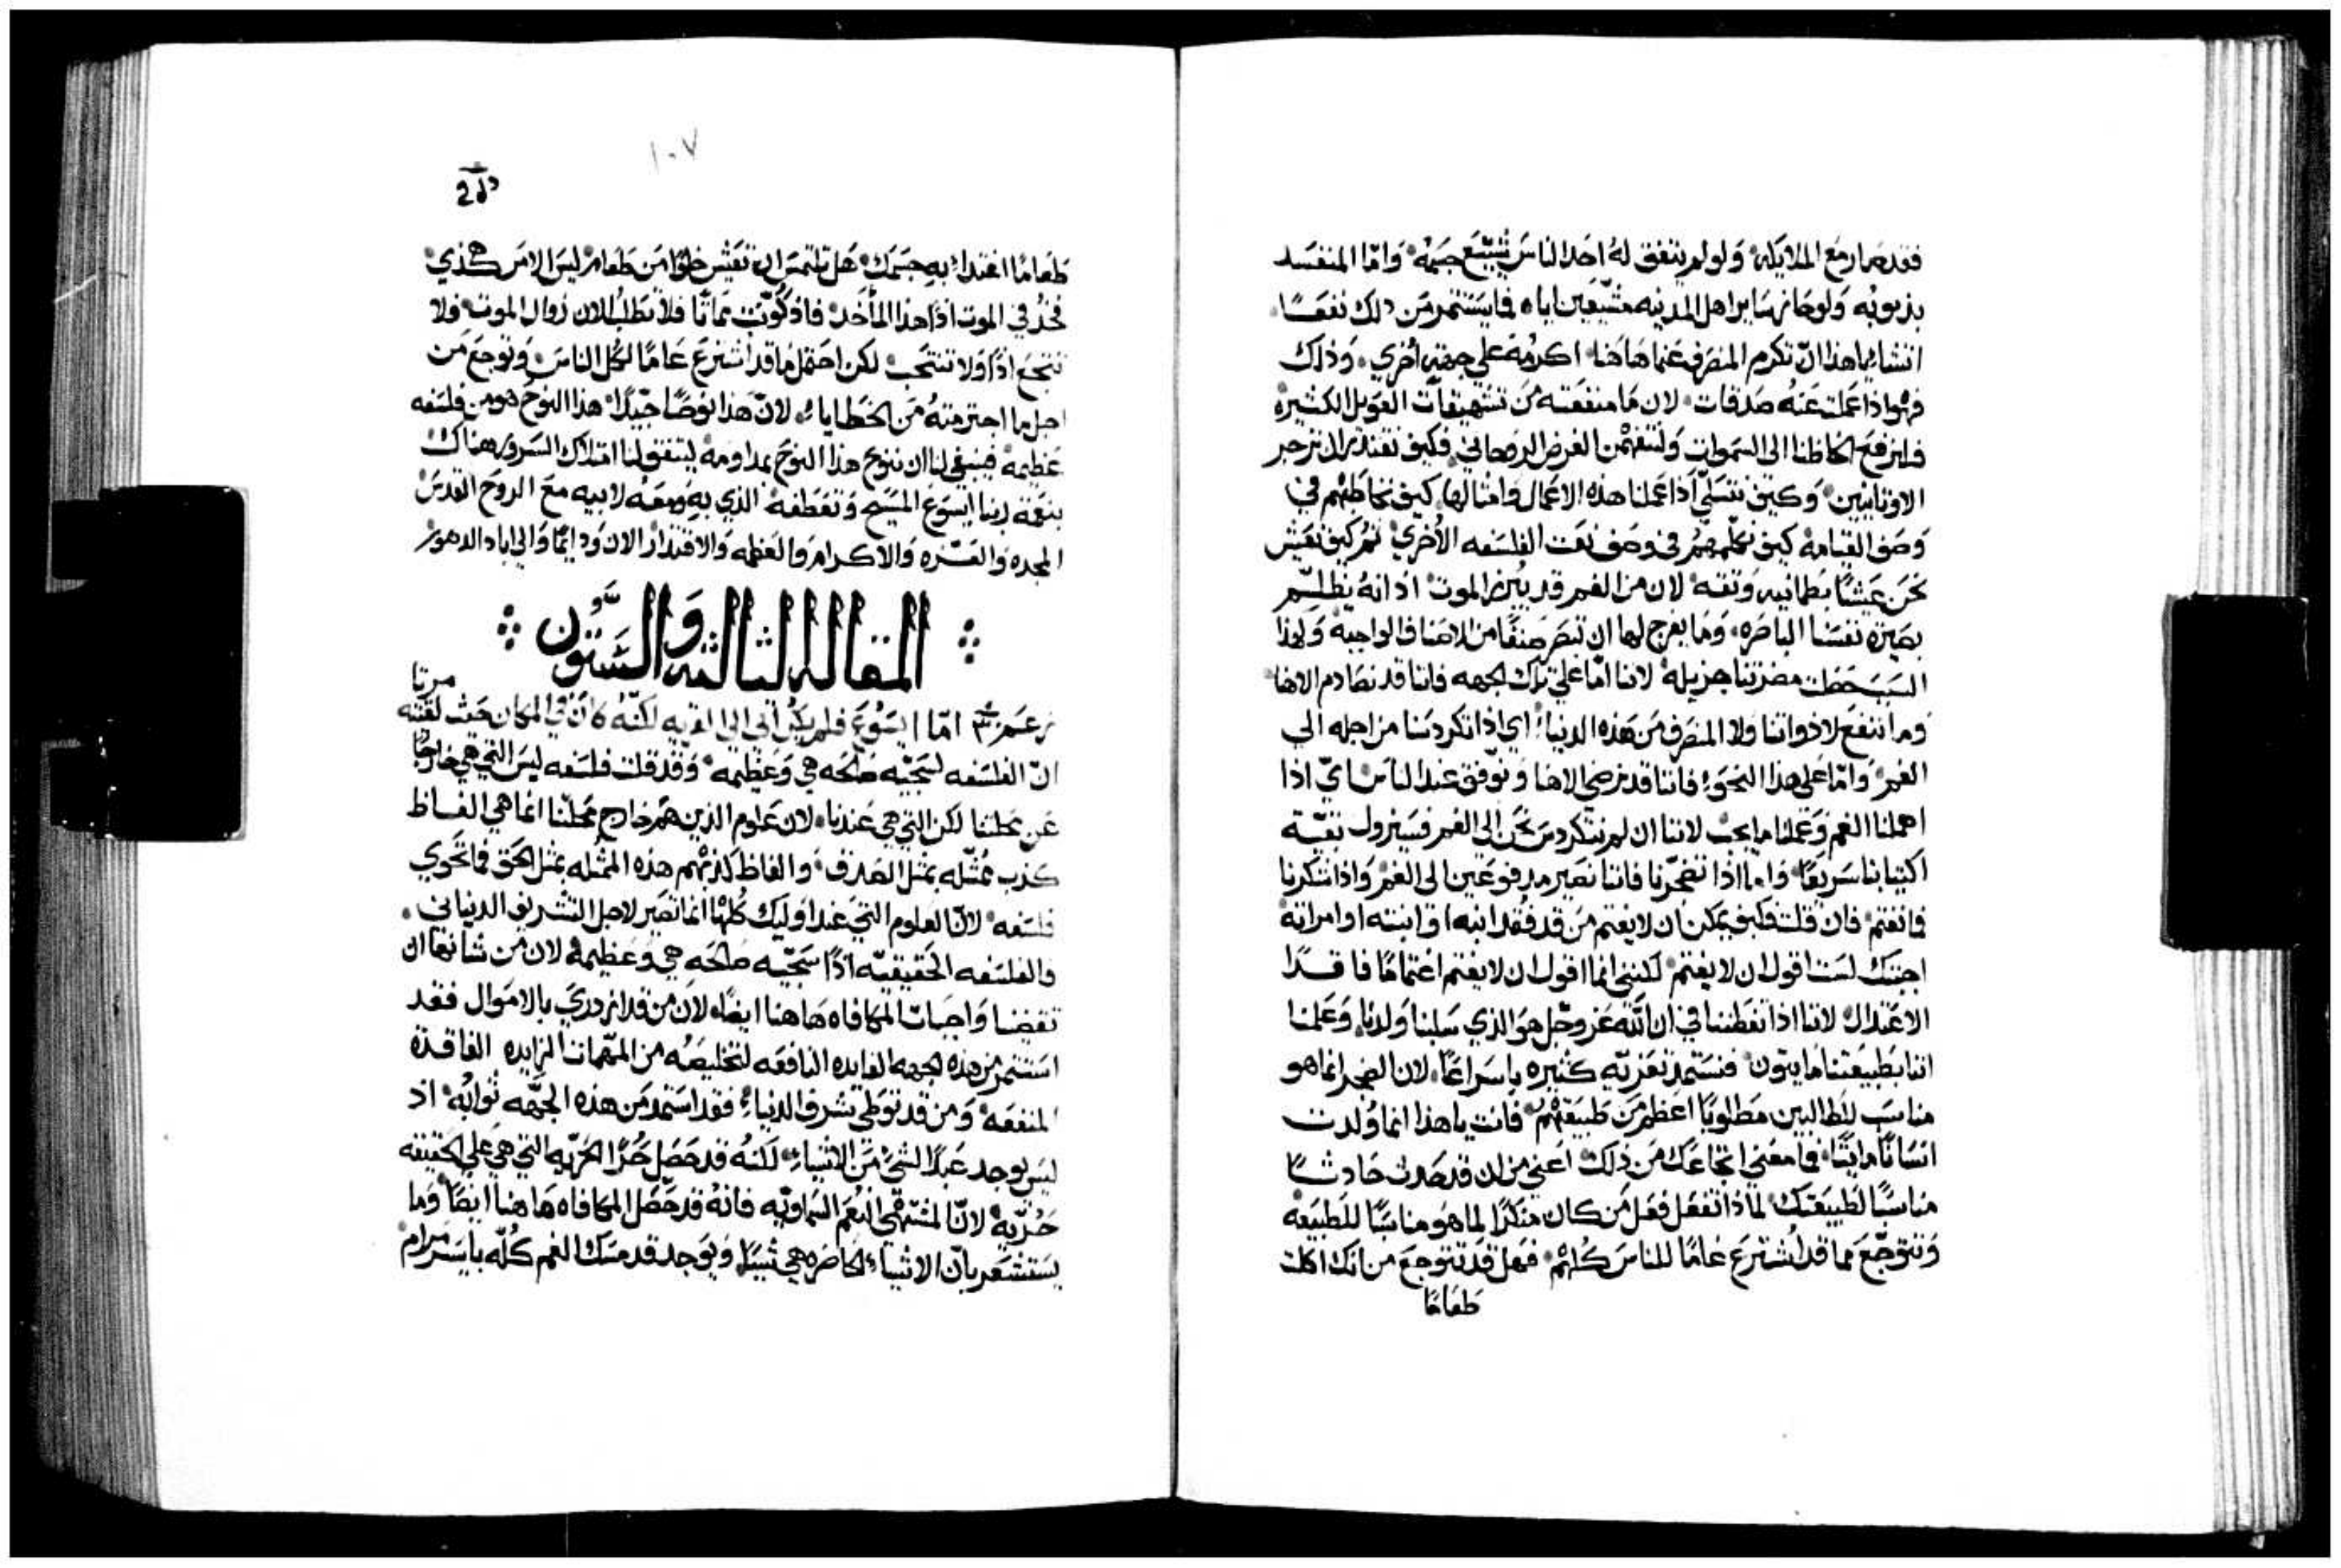 فقد صار مع الملايكه ولو لم يتفق له احد الناس يشيّع جسمه واما المنفسد
بذنوبه ولو حاز ساير اهل المدينه مشيّعين اياه فما يستثمر من ذلك نفعًا
اتشا ياهذا ان تكرم المنصرف عنا هاهنا اكرمه على جهةٍ اخري وذلك
فهو اذا عملت عنه صدقات لان ما منفعته من تشهيقات العويل الكثيره
فلنرفع الحاظنا الى السموات ولنتفهمن الغرض الروحاني فكيف نقتدر ان نزجر
الاوثانيين وكيف نتسلّي اذا عملنا هذه الاعمال وامثالها كيف نخاطبهم في
وصف القيامة كيف نكلمهم في وصف نعت الفلسفه الأخري ثم كيف نعيش
نحن عيشًا بطمانيه وثقه لان من الغم قد يبرز الموت اذ انه يظلّم
بصيرة نفسنا الباصره وما يفرج لها ان تبصر صنفًا من الاصناف الواجبه ولهذا
السبب حصلت مضرتنا جزيله لاننا اما على تلك الجهه فاننا قد نصادم الاهنا
وما ننفع لا ذواتنا ولا المنصرف من هذه الدنيا اي اذا تكردسنا من اجله الي
الغم واما على هذا النحو فاننا قد نرضي الاهنا ونوفق عند الناس اي اذا
اهملنا الغم وعملنا ما يجب لاننا ان لم نتكردس نحن الى الغم فسيزول بقيّة
اكتيابنا سريعًا واما اذا تضجّرنا فاننا نصير مدفوعين الى الغم واذا شكرنا
فما نغتم فان قلت فكيف يمكن ان لا يغتم من قد فقد ابنه او ابنته او امراته
اجبتك لست اقول ان لا يغتم لكنني انما اقول ان لا يغتم اغتمامًا فاقدًا
الاعتدال لاننا اذا تفطننا في ان الله عز وجل هو الذي سلبنا ولدنا وعلمنا
اننا بطبيعتنا مايتون فنستمد تعزيه كثيره باسراعًا لان الضجر انما هو
مناسب للطالبين مطلوبًا اعظم من طبيعتهم فانت ياهذا انما وُلدت
انسانًا مايتًا فما معني اتجاعك من ذلك اعني من ان قد حدث حادثًا
مناسبًا لطبيعتك لماذا تفعل فعل من كان منكرًا لما هو مناسبًا للطبيعه
وتتوجّع مما قد اُشترع عامًا للناس كلهم فهل قد تتوجع من انك اكلت
طعامًا
١٠٧
طعامًا اغتداء به جسمك هل تلتمس ان تعيش خلوًا من طعام ليس الامر كهذي
فخذ في الموت اذًا هذا المأخذ فاذ كوّنت مماتًا فلا تطلب الان زوال الموت ولا
تتجع اذًا ولا تنتحب لكن احتمل ما قد اشترع عامًا لكل الناس وتوجع من
اجل ما اجترمته من الخطايا لان هذا نوحًا جيّدًا هذا النوح هو من فلسفه
عظيمة فينبغي لنا ان ننوح هذا النوح بمداومه ليتفق لنا امتلاك السرور هناك
بنعمة ربنا ايسوع المسيح وتعطفه الذي به ومعه لابيه مع الروح القدس
المجد والعزه والاكرام والعظمه والاقتدار الان ودايمًا والى اباد الدهور
المقالة الثالثة والستون
مرتا
اما ايسوع فلم يكن اتى الى القريه لكنّه كان في المكان حيث لقيته
ان الفلسفه لسجيّه صالحه هي وعظيمه وقد قلت فلسفه ليس التي هي خارجًا
عن نحلتنا لكن التي هي عندنا لان علوم الذين هم خارج نحلّتنا انما هي الفاظ
كذب ممثله بمثل الصدق والفاظ كذبهم هذه الممثله بمثل الحق فما تحوي
فلسفه لان العلوم التي عند اوليك كلها انما تصير لاجل التشريف الدنياني
والفلسفه الحقيقيّه اذًا سجيّه صالحه هي وعظيمة لان من شانها ان
تقضنا واجبات المكافاه هاهنا ايضًا لان من قد ازدري بالاموال فقد
استثمر من هذه الجهه الفايده النافعه لتخليصه من المهمات الزايده الفاقدة
المنفعه ومن قد توطي شرف الدنيا فقد استمد من هذه الجهه ثوابه اذ
ليس يوجد عبدًا لشيٍ من الاشيا لكنه قد حصل حرًا الحريه التي هي على الحقيقه
حُرّيه لان المشتهي النعم السماويه فانه قد حصل المكافاه هاهنا ايضًا وما
يستشعر بان الاشيا الحاضره هي شيًا ويوجد قد مسك الغم كلّه بايسر مرام